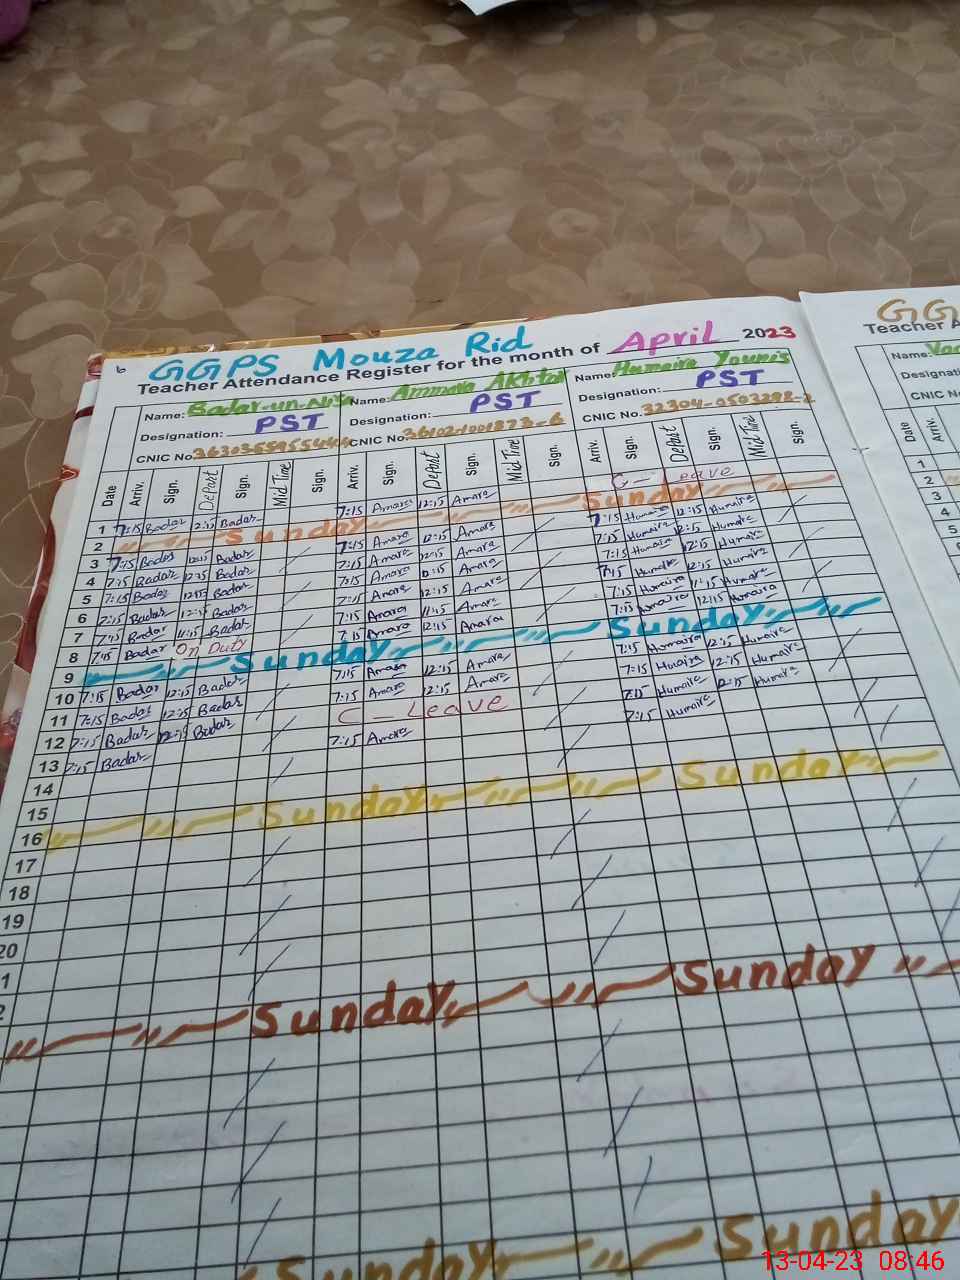 6 GGPS Mouza Rid
Teacher Attendance Register for the month of April 2023
Name: Badar-un-Nisa Name: Ammara Akhtar Name: Humaira Younis
Designation: PST Designation: PST Designation: PST
CNIC No. CNIC No. CNIC No.
Date Arriv. Sign. Depart Sign. Mid Time Sign. Arriv. Sign. Depart Sign. Mid Time Sign. Arriv. Sign. Depart Sign. Mid Time Sign.
1 7:15 Badar 12:15 Badar 7:15 Amara 12:15 Amara C - Leave
2 Sunday Sunday
3 7:15 Badar 12:15 Badar 7:15 Amara 12:15 Amara 7:15 Humaira 12:15 Humaira
4 7:15 Badar 12:15 Badar 7:15 Amara 12:15 Amara 7:15 Humaira 12:15 Humaira
5 7:15 Badar 12:15 Badar 7:15 Amara 12:15 Amara 7:15 Humaira 12:15 Humaira
6 7:15 Badar 12:15 Badar 7:15 Amara 12:15 Amara 7:15 Humaira 12:15 Humaira
7 7:15 Badar 11:15 Badar 7:15 Amara 11:15 Amara 7:15 Humaira 11:15 Humaira
8 7:15 Badar On Duty 7:15 Amara 12:15 Amara 7:15 Humaira 12:15 Humaira
9 Sunday Sunday
10 7:15 Badar 12:15 Badar 7:15 Amara 12:15 Amara 7:15 Humaira 12:15 Humaira
11 7:15 Badar 12:15 Badar 7:15 Amara 12:15 Amara 7:15 Humaira 12:15 Humaira
12 7:15 Badar 12:15 Badar C - Leave 7:15 Humaira 12:15 Humaira
13 7:15 Badar 7:15 Amara 7:15 Humaira
14
15
16 Sunday Sunday
17
18
19
20
1
2
Sunday Sunday
Sunday Sunday
GG
Teacher A
Name:
Designati
CNIC No
Date Arriv.
1
2
3
4
5
13-04-23 08:46